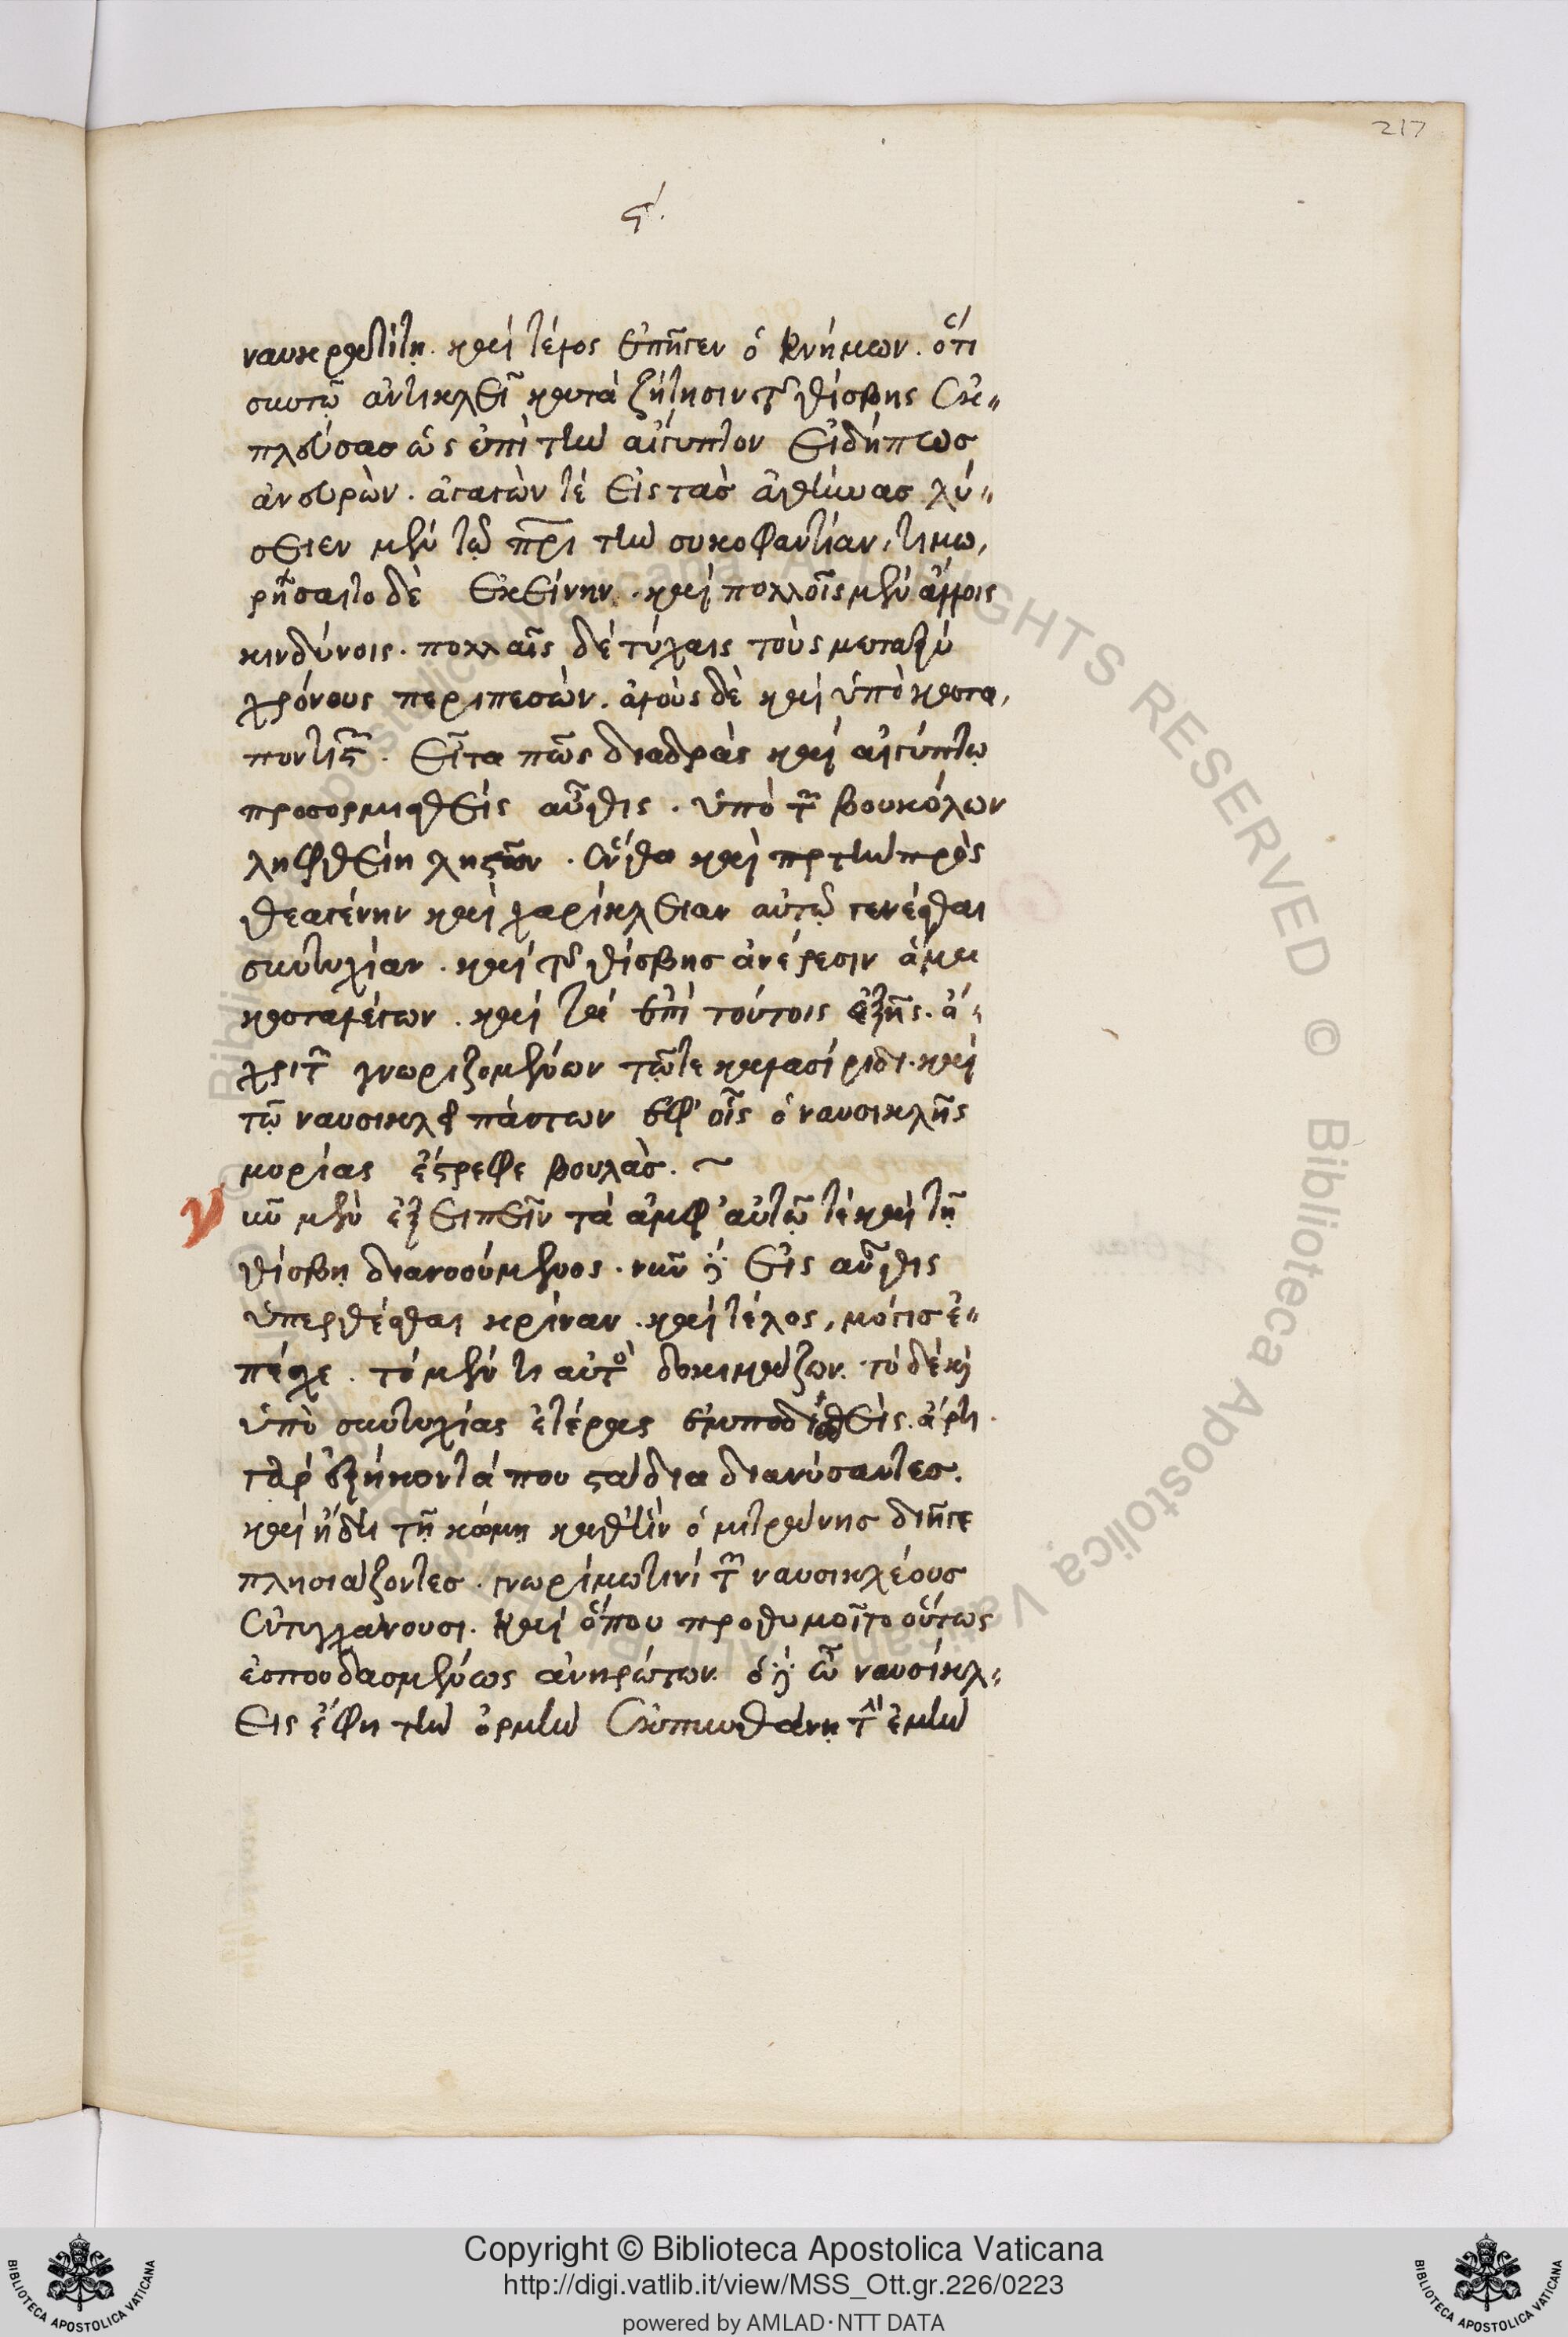 217
ϛ´.
ναυκρατίτῃ. καὶ τέλος ἐπῆγεν ὁ Κνήμων. ὅτι
σὺν τῷ ἀντικλεῖ κατὰ ζήτησιν τῆς θίσβης ἐκ〃
πλεύσας ὡς ἐπὶ τὴν αἴγυπτον εἰ δή πως
ἀνευρὼν. ἀγαγών τέ εἰς τὰς ἀθήνας λύ〃
σειεν μὲν τῷ πατρὶ τὴν συκοφαντίαν, τιμω,
ρήσαιτο δὲ ἐκείνην. καὶ πολλοῖς μὲν ἄλλοις
κινδύνοις. πολλαῖς δὲ τύχαις τοὺς μεταξὺ
χρόνους περιπεσών. ἁλοὺς δὲ καὶ ὑπὸ κατα,
ποντιστῶν. εἶτα πῶς διαδρὰς καὶ αἰγύπτῳ
προσορμισθεὶς αὖθις. ὑπὸ τῶν βουκόλων
ληφθείη λῃστῶν. ἔνθα καὶ παρ τὴν πρὸς
θεαγένην καὶ χαρίκλειαν αὐτῷ γενέσθαι
συντυχίαν. καὶ τῆς θίσβης ἀναίρεσιν ἅμα
καταλέγων. καὶ τὰ ἐπὶ τούτοις ἑξῆς. ἄ〃
χρι τῶν γνωριζομένων τῷ τε καλασίριδι. καὶ
τῷ ναυσικλεῖ πάντων ἐφ' οἷς ὁ ναυσικλῆς
μυρίας ἔστρεφε βουλὰς. ~
νῦν μὲν ἐξειπεῖν τὰ ἀμφ' αὐτῷ τὲ καὶ τῇ
θίσβῃ διανοούμενος. νῦν δὲ εἰς αὖθις
ὑπερθέσθαι κρίναν. καὶ τέλος, μόγις ἐ〃
πέσχε. τὸ μέν τι αὐτὸ δοκιμάζων. τὸ δὲ καὶ
ὑπὸ συντυχίας ἑτέρας ἐμποδισθεὶς. ἄρτι
γὰρ ἑξήκοντά που στάδια διανύσαντες.
καὶ ἤδη τῇ κώμῃ καθ' ἣν ὁ μιτράνης διῆγε
πλησιάζοντες. γνωρίμω τινί τῶν ναυσικλέους
ἐντυγχάνουσι. Καὶ ὅπου προθυμοῖτο οὕτως
ἐσπουδασμένως ἀνηρώτων. ὁ δὲ ὦ ναυσίκλ〃
εις ἔφη τὴν ὁρμὴν ἐκπυνθάνῃ τὴν ἐμὴν
Copyright © Biblioteca Apostolica Vaticana
http://digi.vatlib.it/view/MSS_Ott.gr.226/0223
powered by AMLAD·NTT DATA